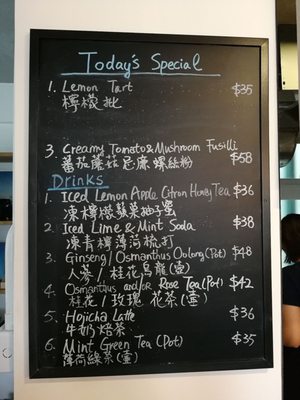 Today's Special
1. Lemon Tart $35
檸檬批
3. Creamy Tomato & Mushroom Fusilli $58
蕃茄蘑菇忌廉螺絲粉
Drinks
1. Iced Lemon Apple Citron Honey Tea $36
凍檸檬蘋菓柚子蜜
2. Iced Lime & Mint Soda $38
凍青檸薄荷梳打
3. Ginseng/Osmanthus Oolong (Pot) $48
人蔘/桂花烏龍(壺)
4. Osmanthus and/or Rose Tea (Pot) $42
桂花/玫瑰花茶(壺)
5. Hojicha Latte $36
牛奶焙茶
6. Mint Green Tea (Pot) $35
薄荷綠茶(壺)